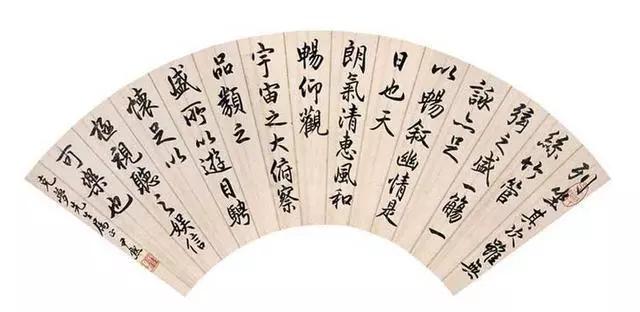 列坐其次雖無
絲竹管
弦之盛一觴一
詠亦足
以暢叙幽情是
日也天
朗氣清惠風和
暢仰觀
宇宙之大俯察
品類之
盛所以遊目騁
懷足以
極視聽之娛信
可樂也
先生屬正尹默